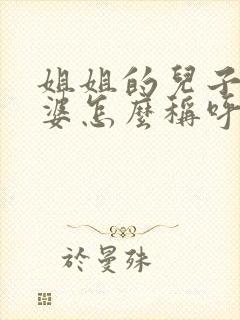 姐姐的兒子
婆怎麼稱呼
於曼殊